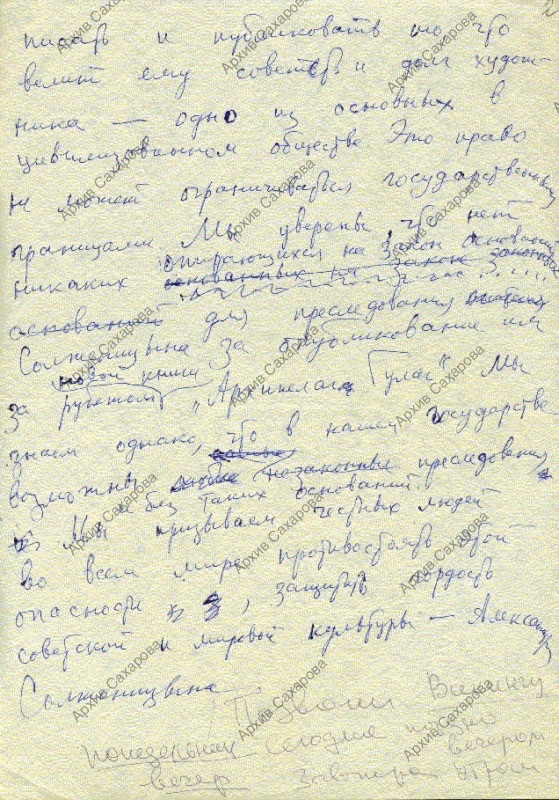 писать и публиковать то, что
велит ему совесть и долг худож-
ника — одно из основных в
цивилизованном обществе. Это право
не может ограничиваться государственными
границами. Мы уверены, что нет
никаких опирающихся на закон оснований
основанных на законе законных
оснований для преследования
Солженицына за опубликование им
за рубежом новой книги „Архипелаг Гулаг“. Мы
знаем однако, что в нашем государстве
возможны незаконные преследования
и без таких оснований.
Мы призываем честных людей
во всем мире противостоять этой
опасности, защитить гордость
советской и мировой культуры — Александра
Солженицына
Позвони
понедельник Сегодня поздно
вечер завтра утром вечером
Архив Сахарова